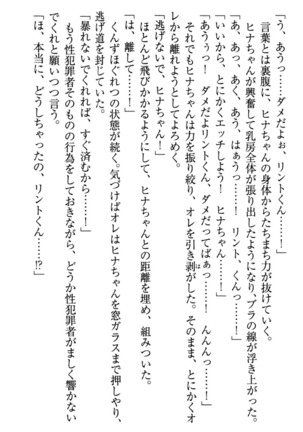 「う、あうっ…… ダメだよぉ、リントくん……！」
言葉とは裏腹に、ヒナちゃんの身体からたちまち力が抜けていく。
ヒナちゃんが興奮して乳房全体が張り出したようになり、ブラの線が浮き上がった。
「あ、あっ、あく、あう、はぁうっ……！ リント、くんっ……！」
「いいから、とにかくエッチしよう！ ヒナちゃん！」
「あうぅっ！ ダメだよリントくん、ダメだってばぁっ……！ んんんっ……！」
それでもヒナちゃんは力を振り絞り、オレを引き剥がした。そのまま、とにかくオ
レから離れようとしてよろめく。
「逃げないで、ヒナちゃん！」
ほとんど飛びかかるようにして、ヒナちゃんとの距離を埋め、組みついた。
「は、離して……！」
くんずほぐれつの状態が続く。気づけばオレはヒナちゃんを窓ガラスまで押しやり、
逃げ道を封じていた。
「暴れないでくれれば、すぐ済むから……！」
もう性犯罪者そのものの行為をしておきながら、どうか性犯罪者がましく響かない
でくれと願いつつ言う。
「ほ、本当に、どうしちゃったの、リントくん……!?」